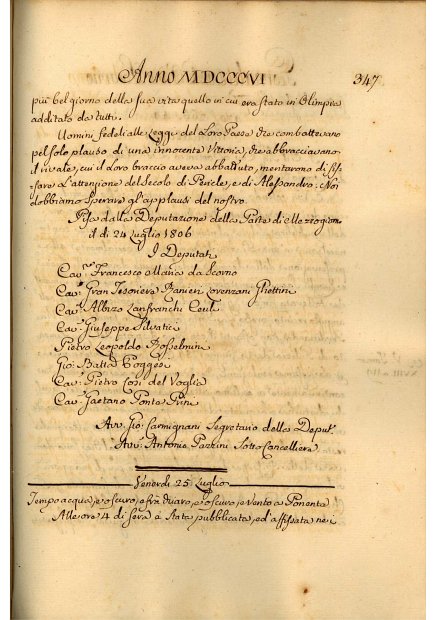 Anno MDCCCVI 347
più bel giorno della sua vita quello in cui era stato in Olimpia
additato da tutti.
Uomini fedeli alle Leggi del Loro Paese che combattevano
pel solo plauso di una innocente Vittoria, che abbracciavano
il rivale, cui il loro braccio aveva abbattuto, meritarono di fis-
sare L'attenzione del Secolo di Pericle, e di Alessandro: Noi
dobbiamo sperare gl'applausi del nostro.
Pisa dalla Deputazione della Parte di Mezzogiorno
il di 24 Luglio 1806
I Deputati
Cav.r Francesco Maria da Scorno
Cav.r Gran Tesoriere Ranieri Lorenzani Ghettini
Cav.r Albizo Lanfranchi Ceuli
Cav.r Giuseppe Silvatici
Pietro Leopoldo Rosselmini
Gio: Batta Poggesi
Cav.r Pietro Cosi del Voglia
Cav.r Gaetano Ponta Prini
Avv. Gio: Carmignani Segretario della Deput.
Avv. Antonio Pazzini Sotto Cancelliere
Venerdì 25 Luglio
Tempo acqua, e oscuro, e fra chiaro, e oscuro, e vento a Ponente
Alle ore 4 di sera è stata pubblicata, ed affissata nei